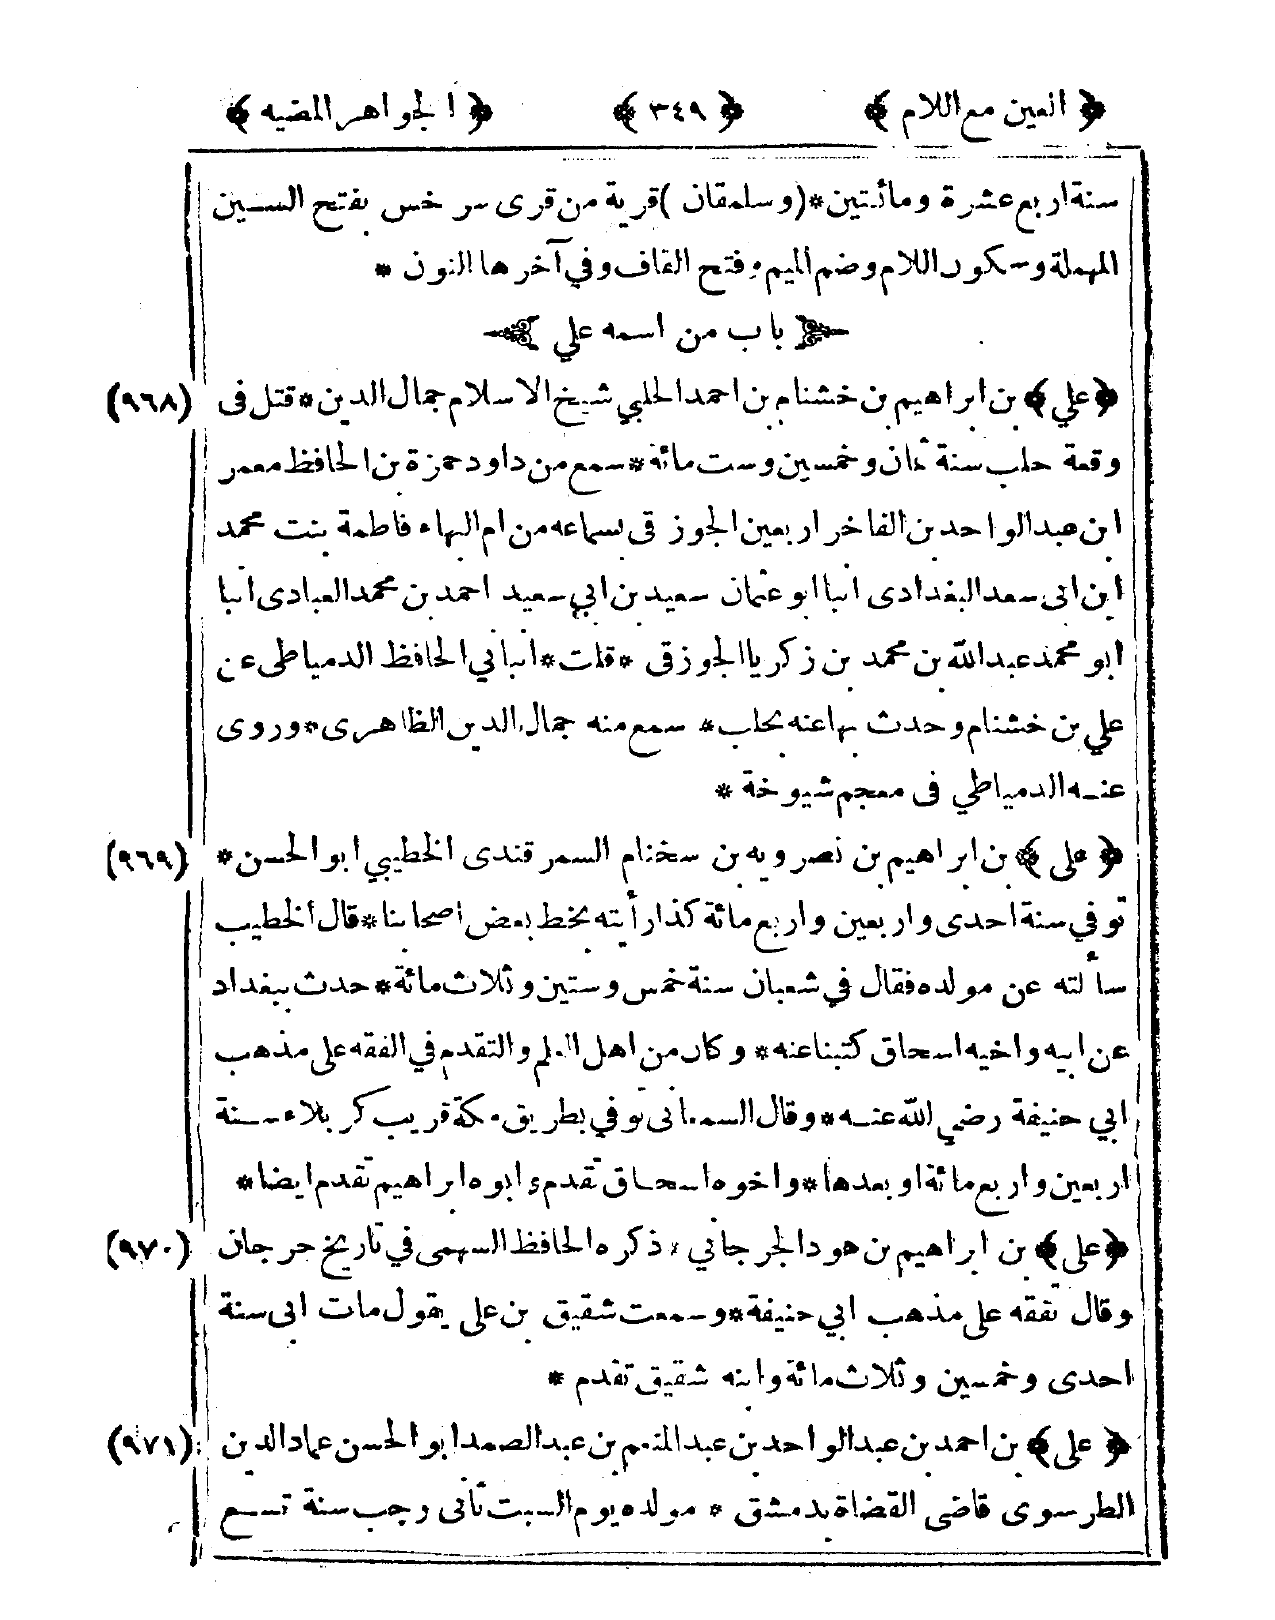 ﴿ العين مع اللام ﴾ ﴿ ٣٤٩ ﴾ ﴿ الجواهر المضيه ﴾
سنة اربع عشرة ومائتين * (وسلمقان) قرية من قرى سرخس بفتح السين
المهملة وسكون اللام وضم الميم وفتح القاف وفي آخرها النون *
باب من اسمه علي
﴿ علي ﴾ بن ابراهيم بن خشنام بن احمد الحلبي شيخ الاسلام جمال الدين * قتل فى (٩٦٨)
وقعة حلب سنة ثمان وخمسين وست مائة * سمع من داود حمزة بن الحافظ معمر
ابن عبد الواحد بن الفاخر اربعين الجوزقى بسماعه من ام البهاء فاطمة بنت محمد
ابن ابى سعد البغدادى انبا ابو عثمان سعيد بن ابي سعيد احمد بن محمد العيادى انبا
ابو محمد عبد الله بن محمد بن زكريا الجوزقى * قلت * انباني الحافظ الدمياطى عن
علي بن خشنام وحدث بها عنه بحلب * سمع منه جمال الدين الظاهرى * وروى
عنه الدمياطي فى معجم شيوخة *
﴿ على ﴾ بن ابراهيم بن نصرويه بن سخنام السمرقندى الخطيبي ابو الحسن * (٩٦٩)
توفي سنة احدى واربعين واربع مائة كذا رأيته بخط بعض اصحابنا * قال الخطيب
سألته عن مولده فقال في شعبان سنة خمس وستين وثلاث مائة * حدث ببغداد
عن ابيه واخيه اسحاق كتبنا عنه * وكان من اهل العلم والتقدم في الفقه على مذهب
ابي حنيفة رضي الله عنه * وقال السمعانى توفي بطريق مكة قريب كربلاء سنة
اربعين واربع مائة او بعدها * واخوه اسحاق تقدم وابوه ابراهيم تقدم ايضا *
﴿ على ﴾ بن ابراهيم بن هود الجرجاني * ذكره الحافظ السهمى في تاريخ جرجان (٩٧٠)
وقال تفقه على مذهب ابي حنيفة * وسمعت شقيق بن على يقول مات ابى سنة
احدى وخمسين وثلاث مائة وابنه شقيق تقدم *
﴿ على ﴾ بن احمد بن عبد الواحد بن عبد المنعم بن عبد الصمد ابو الحسن عماد الدين (٩٧١)
الطرسوى قاضى القضاة بدمشق * مولده يوم السبت ثانى رجب سنة تسع